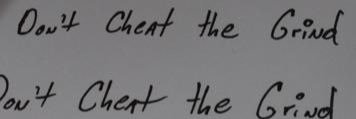 Don't Cheat the Grind
Don't Cheat the Grind